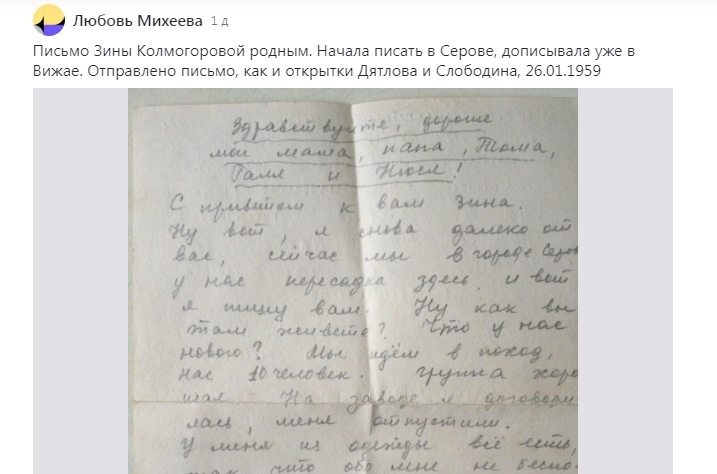 Любовь Михеева 1 д
Письмо Зины Колмогоровой родным. Начала писать в Серове, дописывала уже в
Вижае. Отправлено письмо, как и открытки Дятлова и Слободина, 26.01.1959
Здравствуйте, дорогие
мои мама, папа, Тома,
Галя и Нюся!
С приветом к вам Зина.
Ну вот, я снова далеко от
вас, сейчас мы в городе Серо
у нас пересадка здесь и вот
я пишу вам. Ну как вы
там живёте? Что у нас
нового? Мы идём в поход,
нас 10 человек. группа хоро
шая. На заводе я договори
лась, меня отпустили.
У меня из одежды всё есть,
так что обо мне не беспо